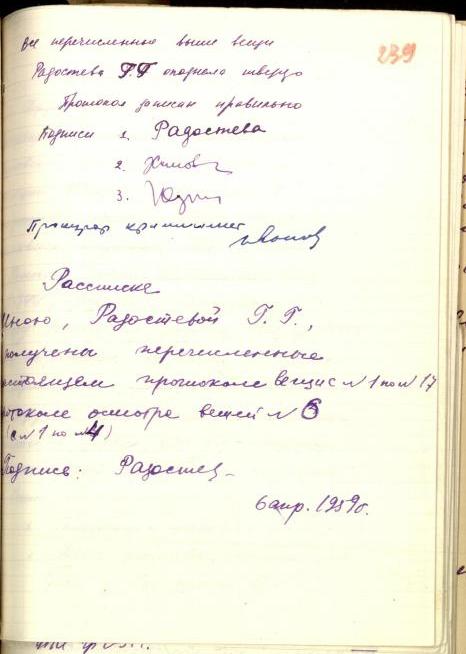 239
все перечисленные выше вещи
Радостева Г.Г опознала твердо
Протокол записан правильно
Подписи 1. Радостева
2.
3. Юдин
Прокурор криминалист Иванов
Расписка
Мною, Радостевой Г. Г.,
получены перечисленные
настоящем протоколе вещи с №1 по №17
протоколе осмотре вещей № 6
(с №1 по №4)
Подпись: Радостева
6 апр. 1959г.